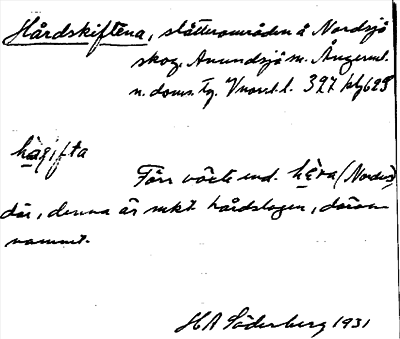 Hårdskiftena, slåtterområden å Nordsjö
skog, Anundsjö sn. Ångerml.
n. doms. Tg. Vuxrel. l. 327 klg 623
hạgifta
Förr växte end. hẹra (Nordsjö)
där, denna är mkt hårdslagen, därav
namnet.
HA Söderberg 1931